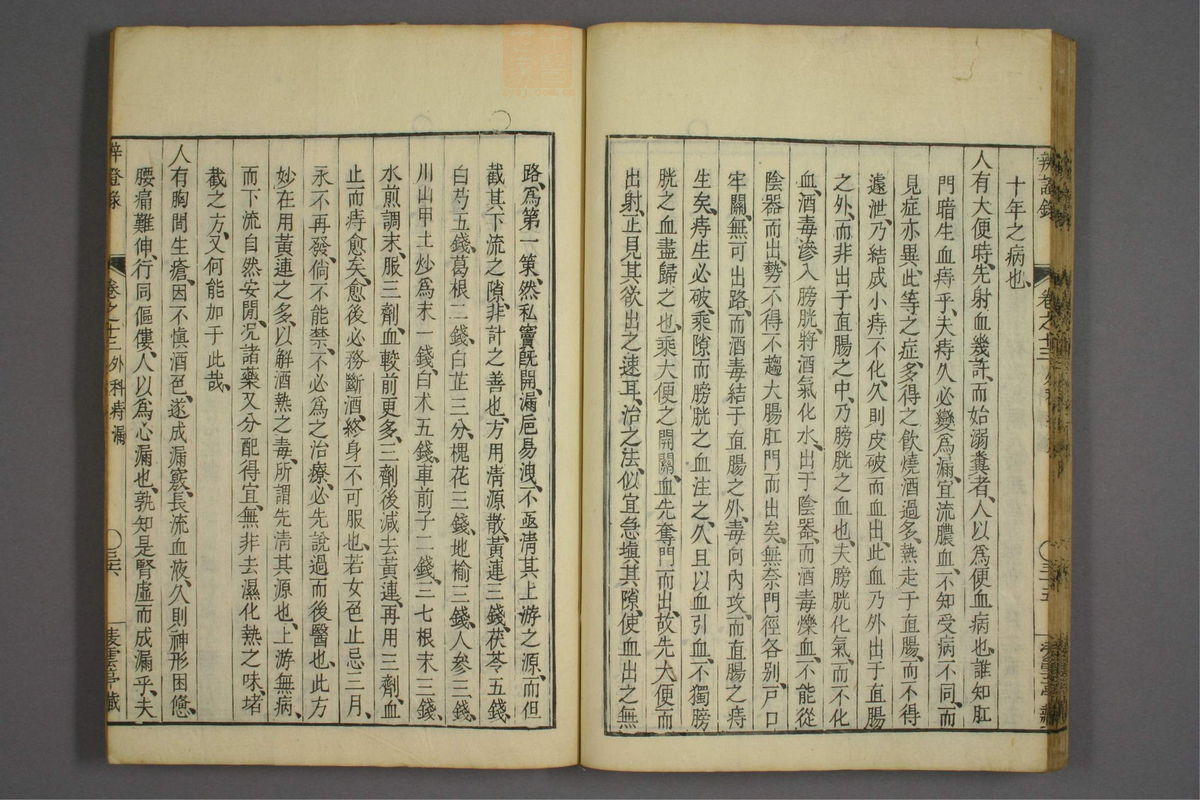 十年之病也
人有大便時先射血幾許而始溺糞者人以爲便血病也誰知肛
門暗生血痔乎夫痔久必變爲漏宜流膿血不知受病不同而
見症亦異此等之症多得之飲燒酒過多熱走于直腸而不得
遽泄乃結成小痔不化久則皮破而血出此血乃外出于直腸
之外而非出于直腸之中乃膀胱之血也夫膀胱化氣而不化
血酒毒滲入膀胱將酒氣化水出于陰器而酒毒爍血不能從
陰器而出勢不得不趨大腸肛門而出矣無奈門徑各别戸口
牢關無可出路而酒毒結于直腸之外毒向內攻而直腸之痔
生矣痔生必破乘隙而膀胱之血注之久且以血引血不獨膀
胱之血盡歸之也乘大便之開關血先奪門而出故先大便而
出射正見其欲出之速耳治之法似宜急塡其隙使血出之無
路爲第一策然私竇旣開漏巵易洩不亟淸其上游之源而但
截其下流之隙非計之善也方用淸源散黃連三錢茯苓五錢
白芍五錢葛根二錢白芷三分槐花三錢地榆三錢人參三錢
川山甲土炒爲末一錢白术五錢車前子二錢三七根末三錢
水煎調末服三劑血較前更多三劑後減去黃連再用三劑血
止而痔愈矣愈後必務斷酒終身不可服也若女色止忌三月
永不再發倘不能禁不必爲之治療必先說過而後醫也此方
妙在用黃連之多以解酒熱之毒所謂先淸其源也上游無病
而下流自然安閒況諸藥又分配得宜無非去濕化熱之味堵
截之方又何能加于此哉
人有胸間生瘡因不愼酒色遂成漏竅長流血液久則神形困憊
腰痛難伸行同傴僂人以爲心漏也孰知是腎虛而成漏乎夫
辨證錄 卷之十三 外科痔漏 三六 凌雲亭藏